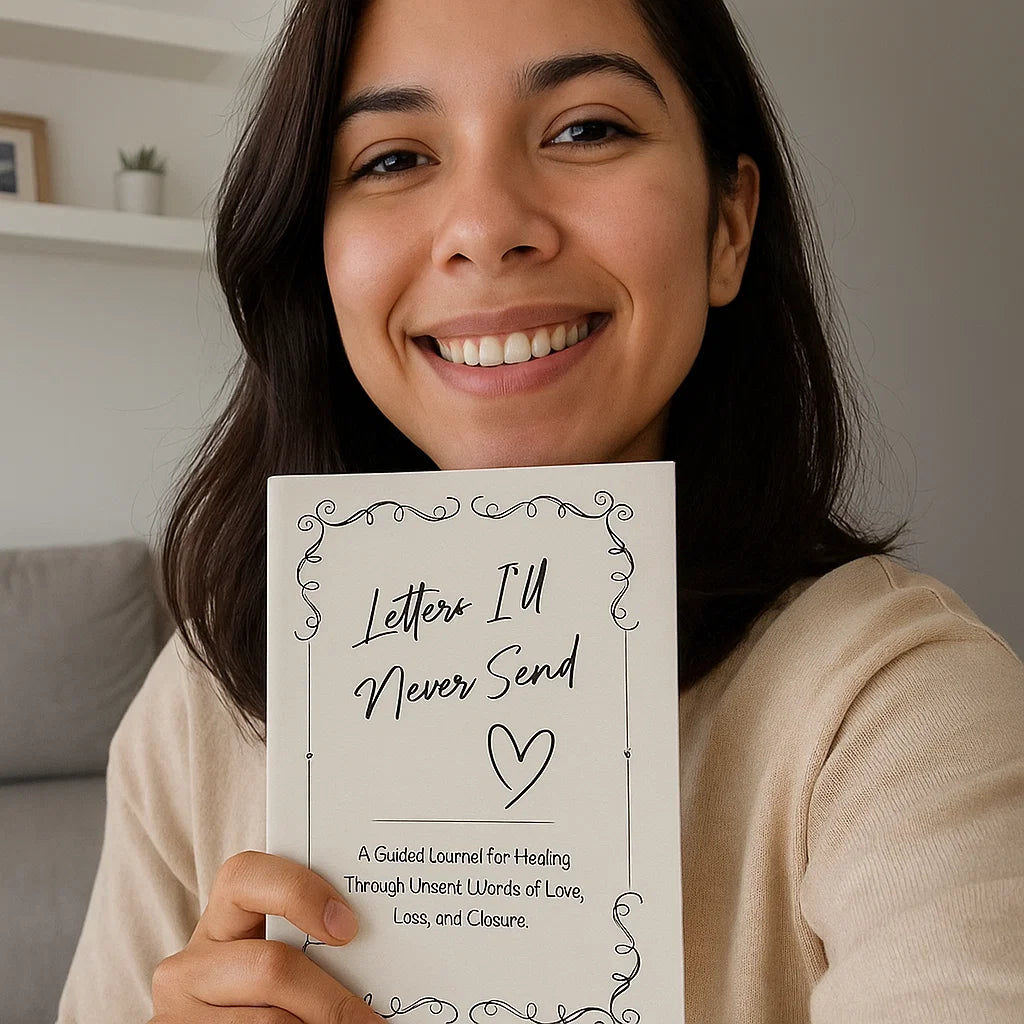 Letters I'll
Never Send
A Guided Lournel for Healing
Through Unsent Words of Love,
Loss, and Closure.